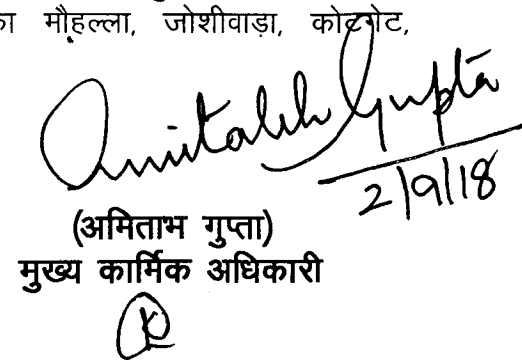 का मौहल्ला, जोशीवाड़ा, कोटगेट,
Amitabh Gupta
2/9/18
(अमिताभ गुप्ता)
मुख्य कार्मिक अधिकारी